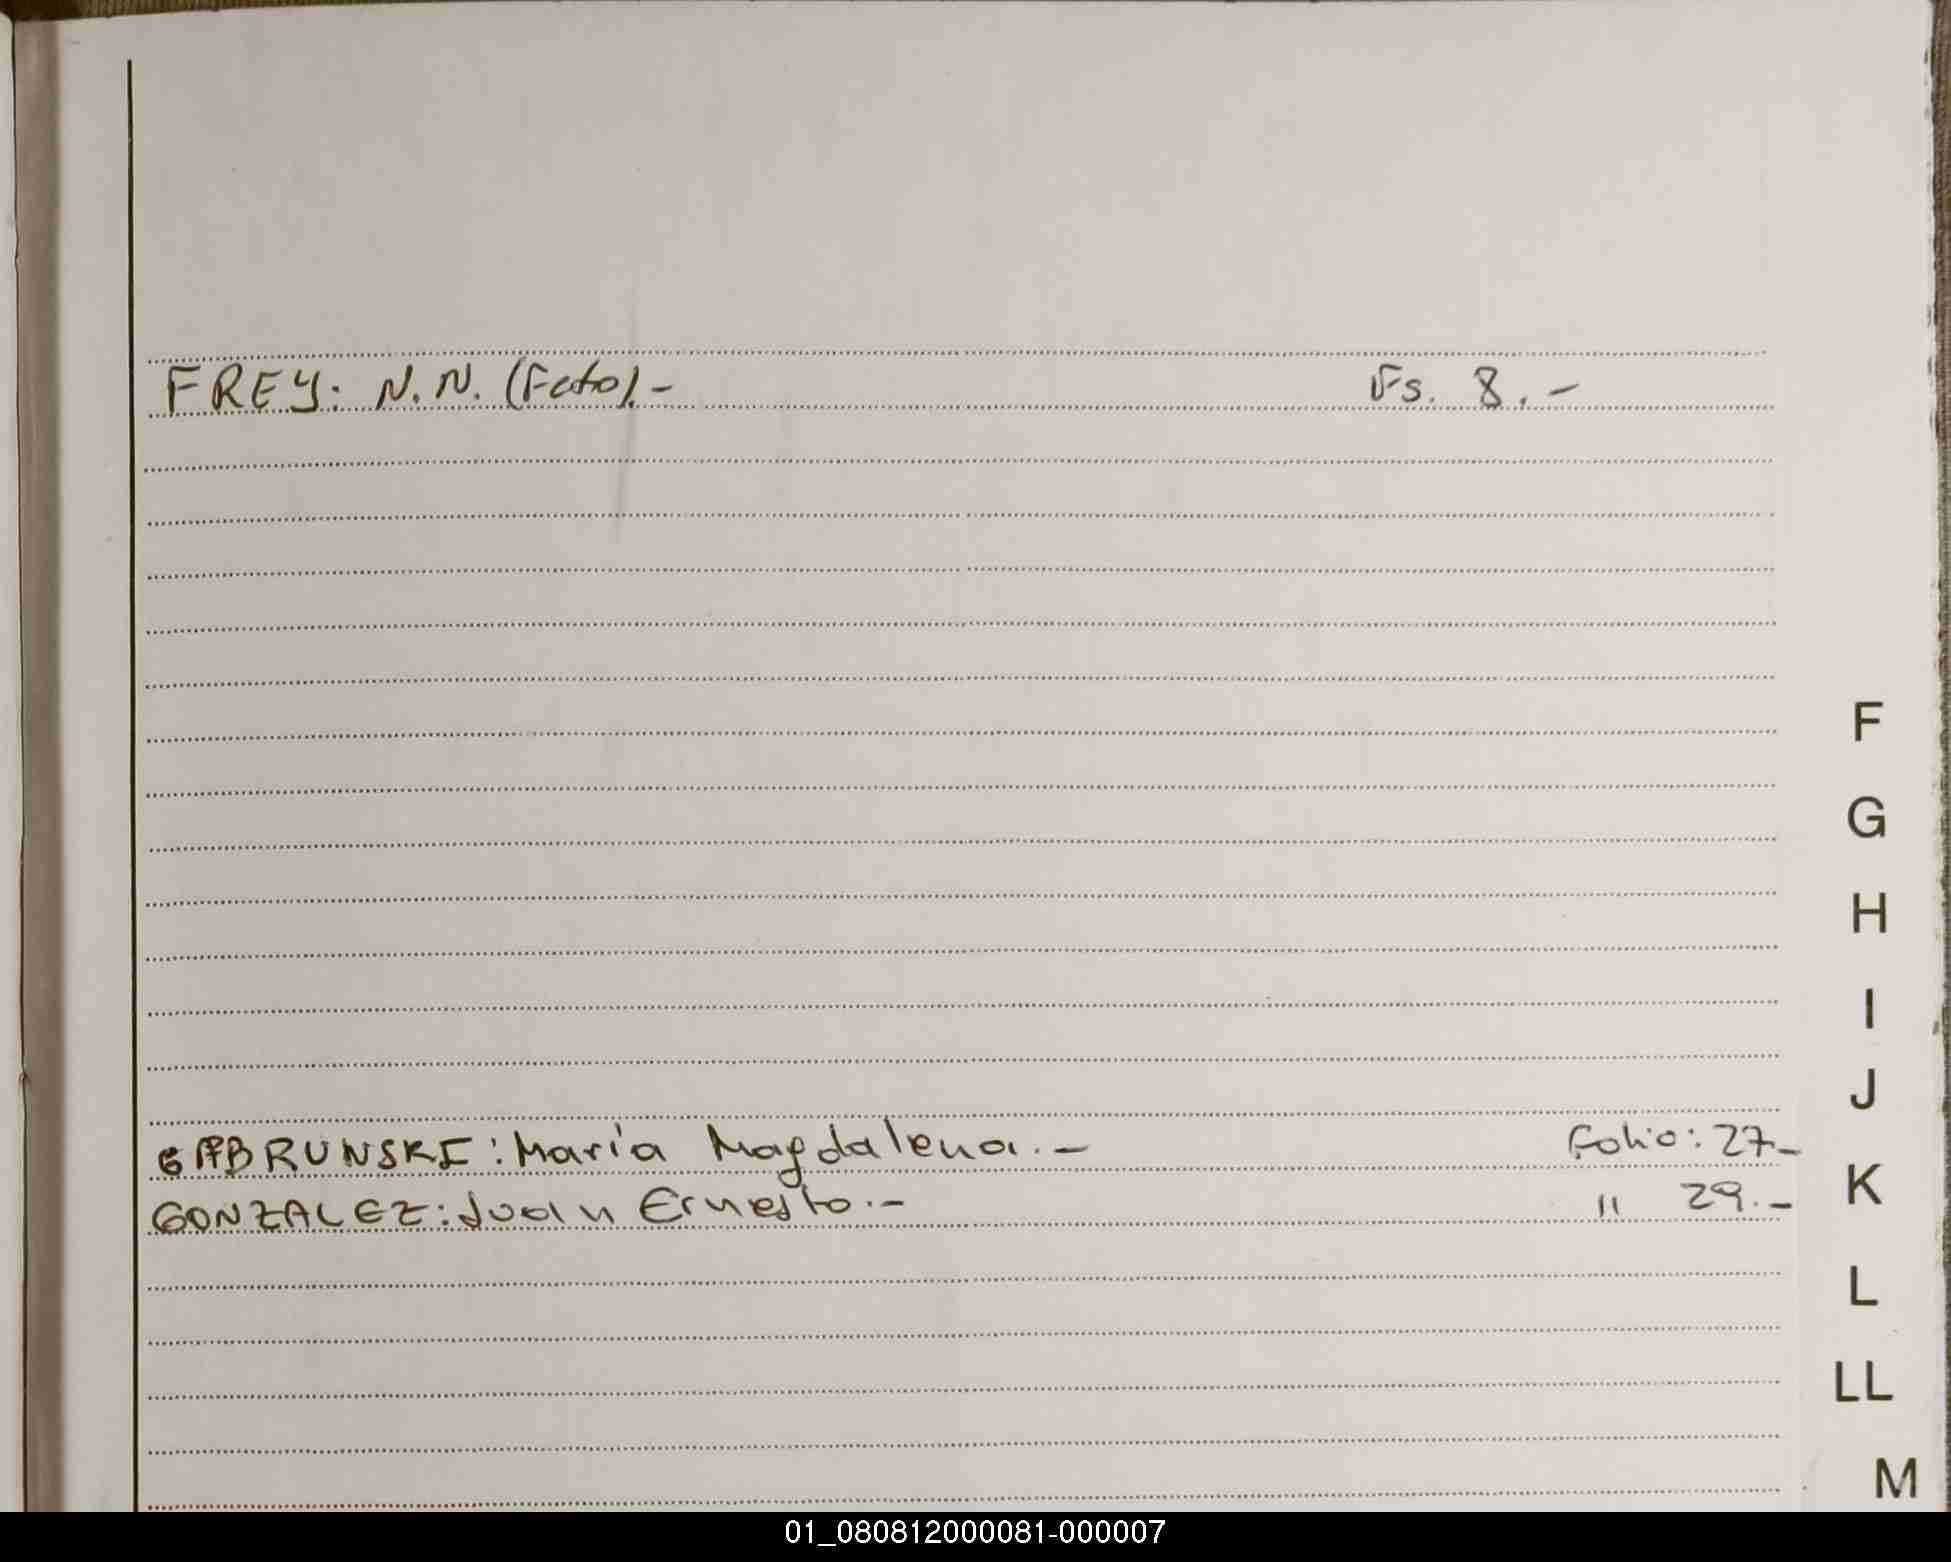 FREY: N.N. (Feto).- Fs. 8.-
F
G
H
I
J
GABRUNSKI: María Magdalena.- Folio: 27-
K
GONZALEZ: Juan Ernesto.- " 29.-
L
LL
M
01_080812000081-000007